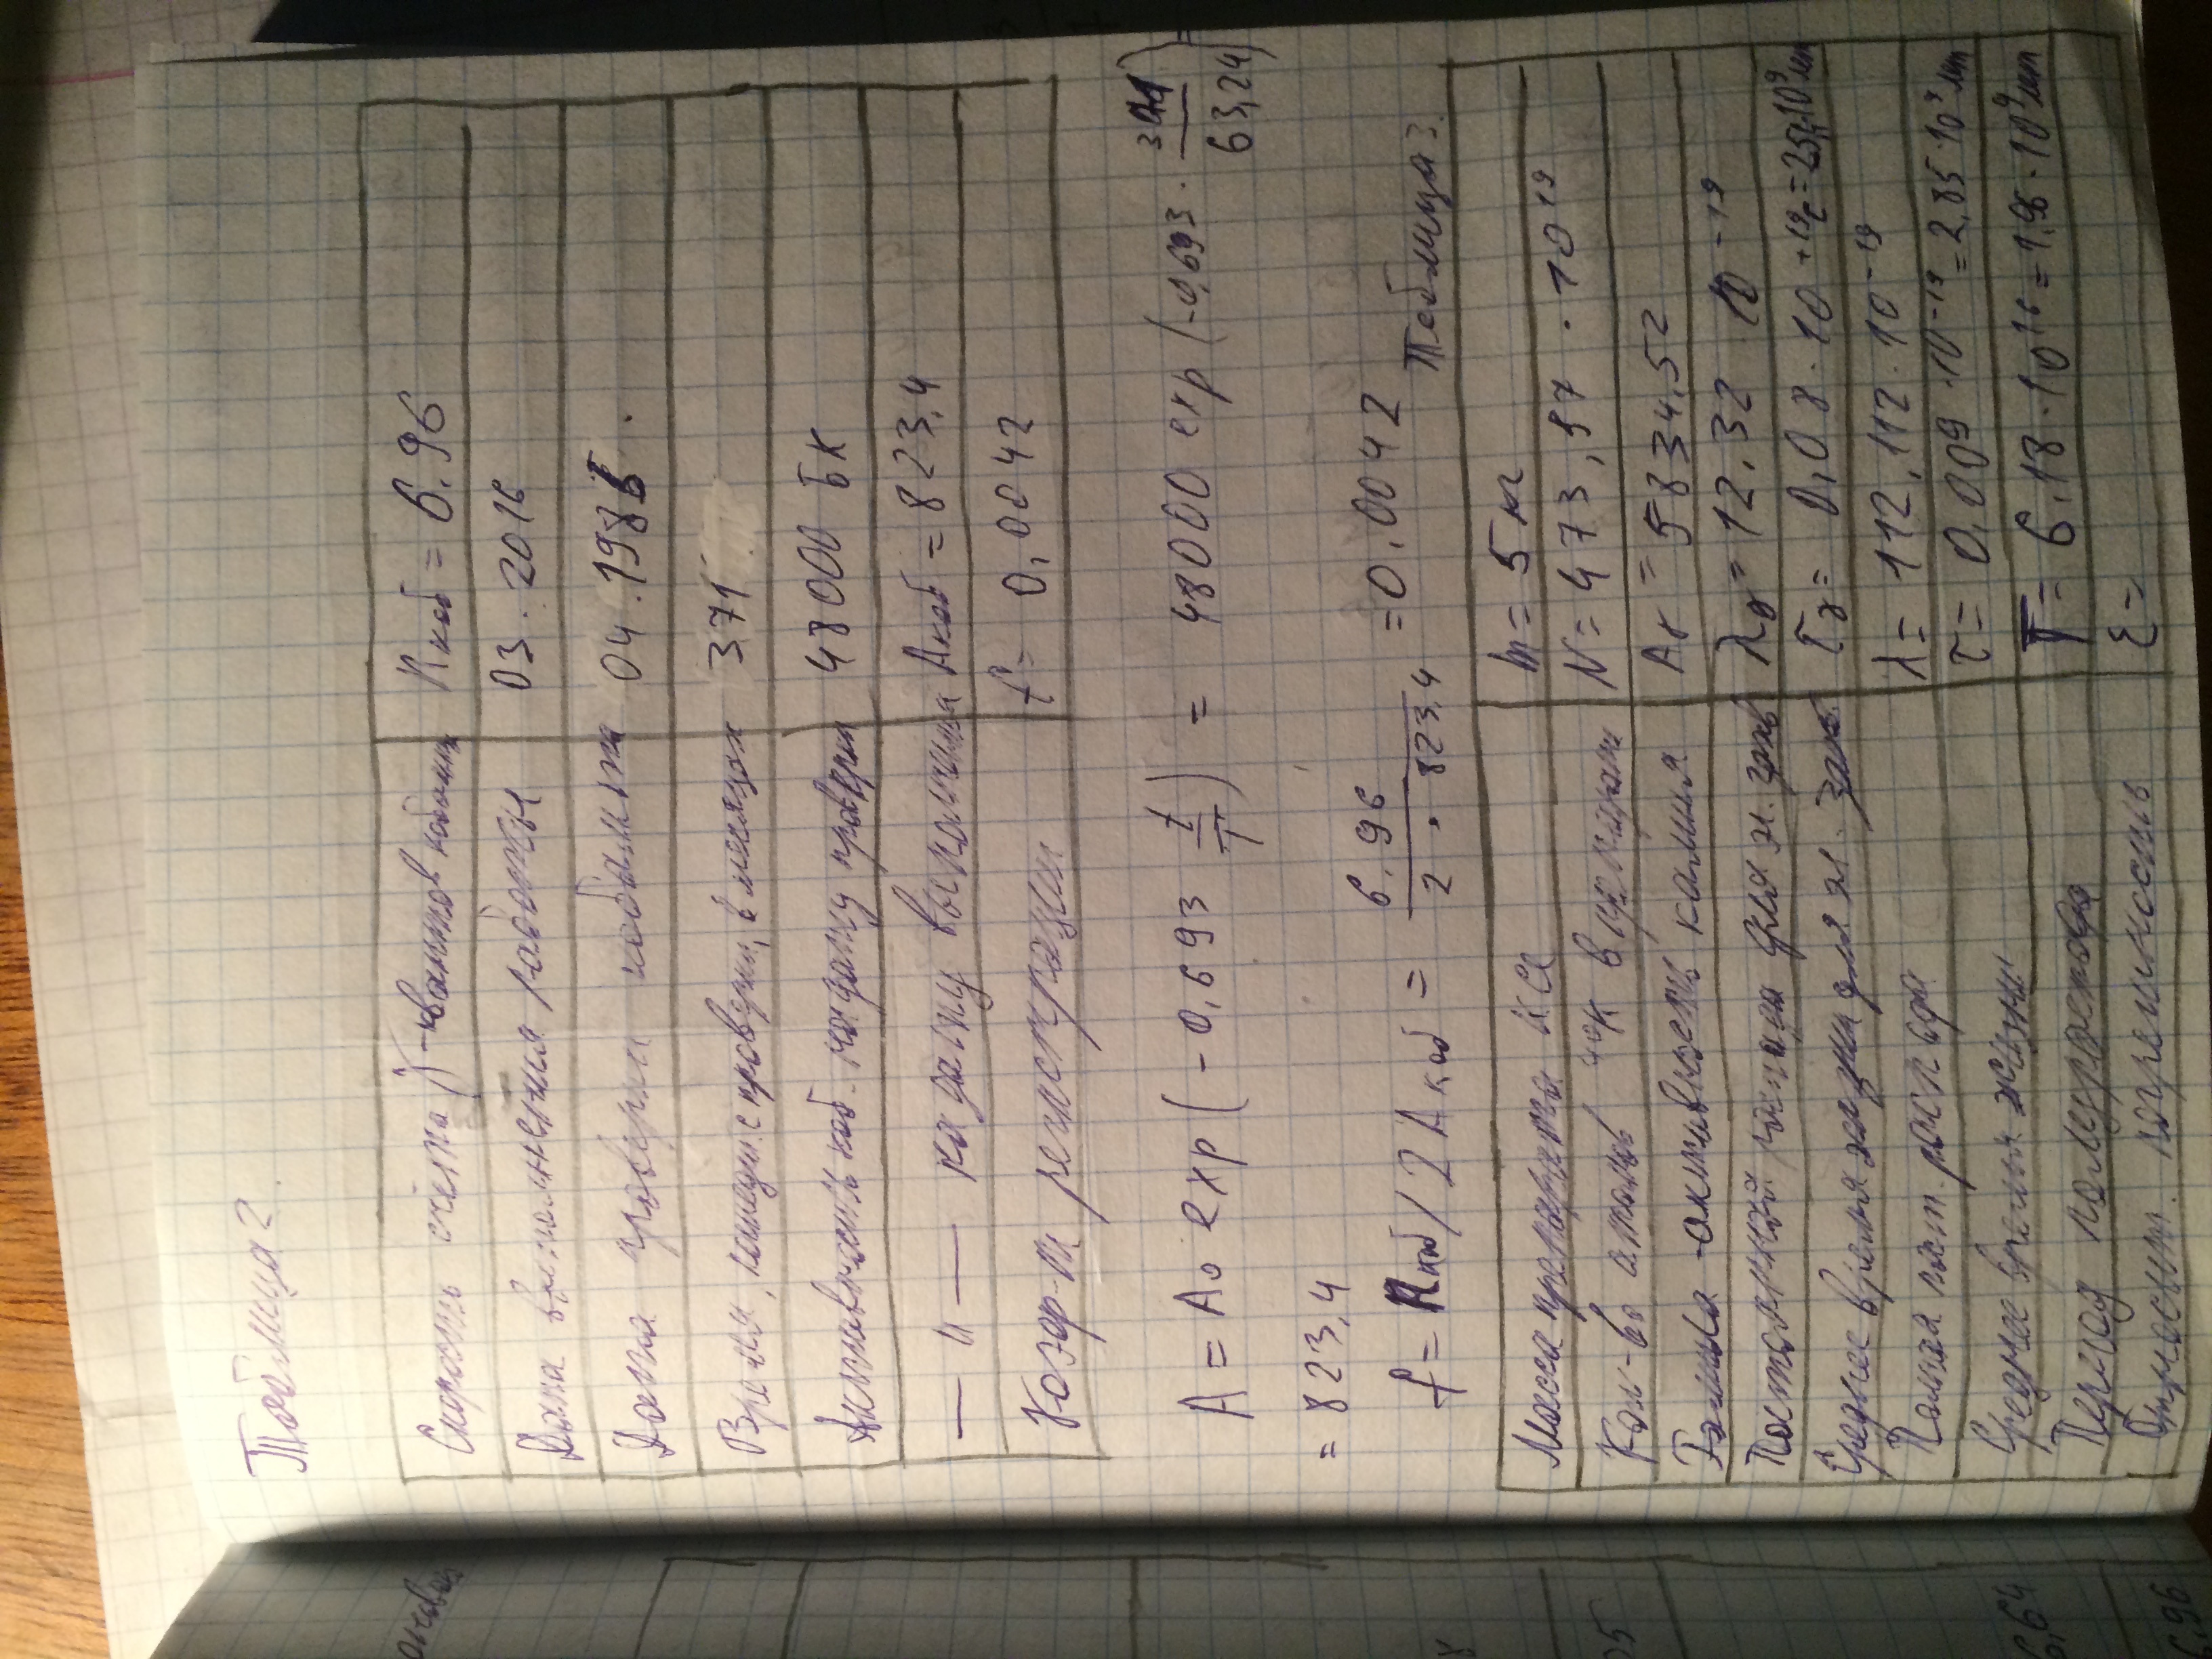 Таблица 2.
Скорость счёта γ-квантов кобальта nкоб = 6.96
Дата выполнения работы 03.2016
Дата проверки кобальта 04.1985.
Время, прошедш. с проверки, в месяцах 371
Активность коб. на дату проверки 48000 БК
— и — на дату выполнения Aкоб = 823,4
Коэф-т регистрации f = 0,0042
A = A₀ exp(-0,693 t/T) = 48000 exp(-0,693 · /63,24) =
= 823,4
f = nкоб / 2Aкоб = 6.96 / 2 · 823,4 = 0,0042
Таблица 3.
Масса препарата KCl m = 5 кг
Кол-во атомов ⁴⁰K в препарате N = 473,97 · 10¹⁹
Гамма-активность калия Aγ = 5834,52
Постоянная распада для э. захв λγ = 12,32 10⁻¹⁹
Среднее время жизни для эл. захв. τγ = 0,08 · 10⁺¹⁹с = 25,4·10⁹ лет
Полная пост. распада λ = 112,112 · 10⁻¹⁹
Среднее время жизни τ = 0,009 · 10⁻¹⁹ = 2,85 · 10⁹ лет
Период полураспада T = 6,18 · 10¹⁶ = 1,96 · 10⁹ лет
Относит. погрешность ε =
6,64
6,96